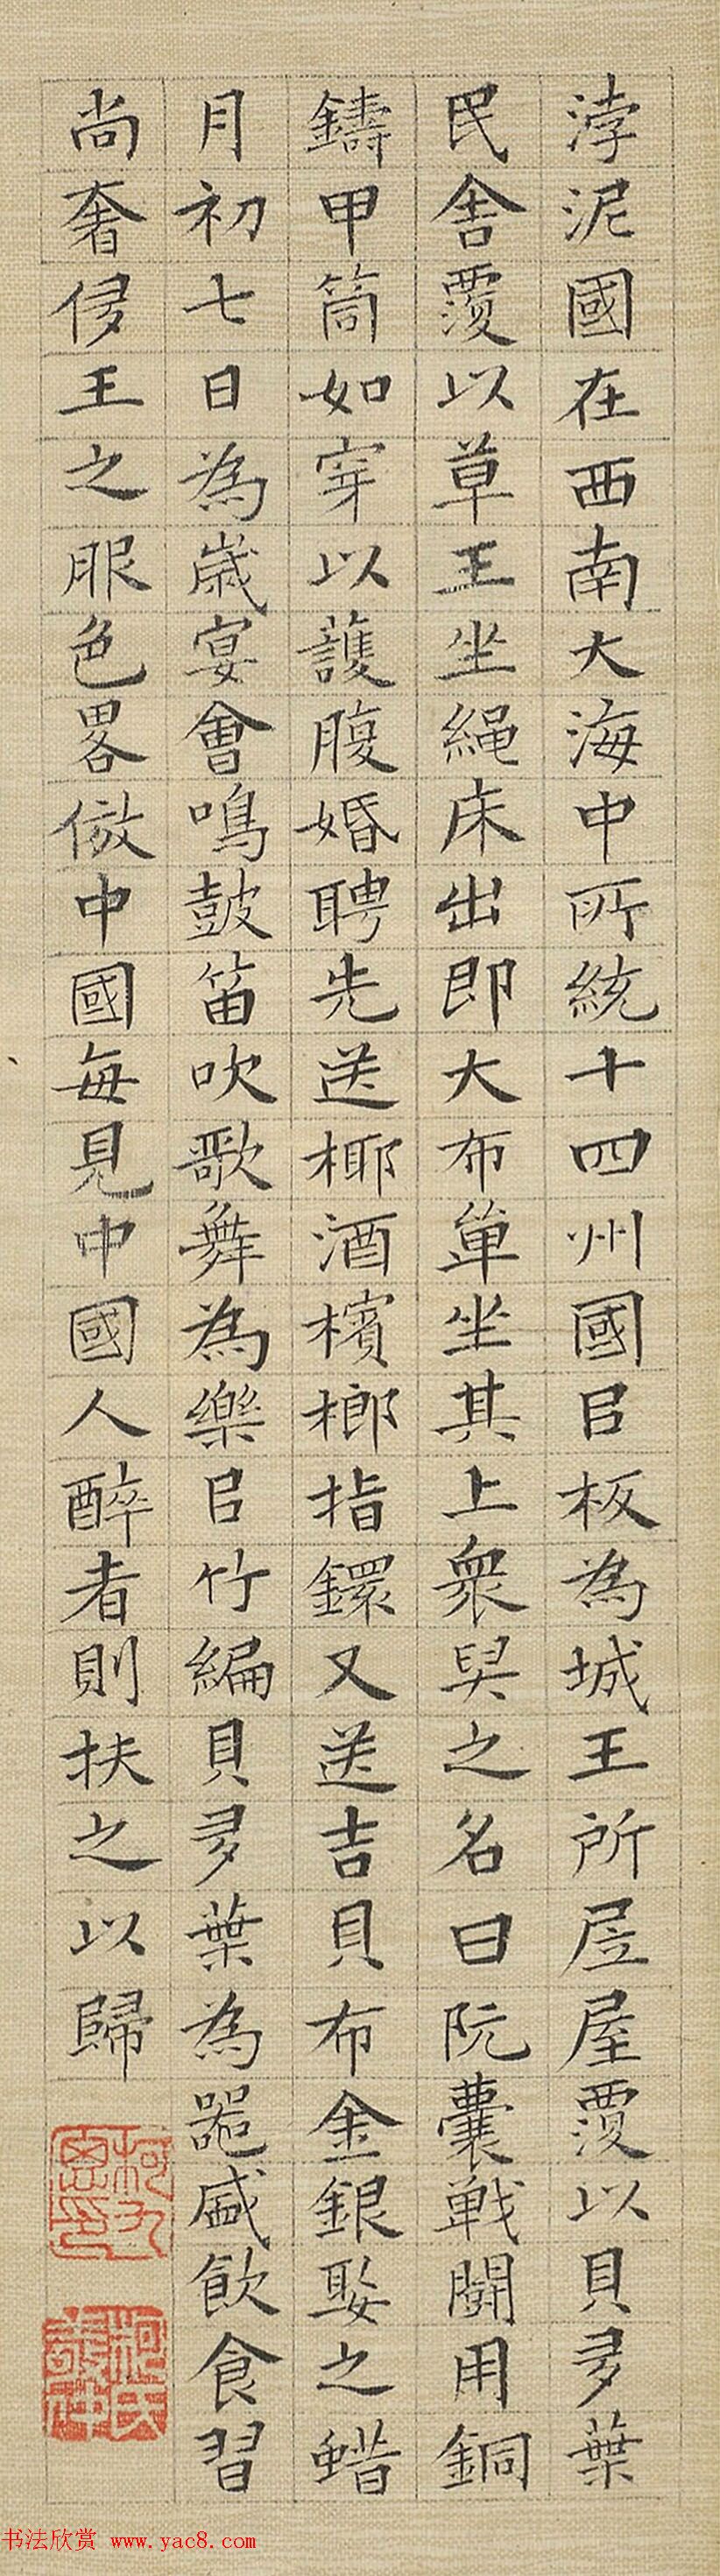 浡泥國在西南大海中所統十四州國㠯板為城王所㞐屋覆以貝多葉
民舍覆以草王坐繩床出即大布單坐其上衆舁之名曰阮囊戰鬭用銅
鑄甲筒如穿以護腹婚聘先送椰酒檳榔指鐶又送吉貝布金銀娶之蜡
月初七日為歲宴會鳴鼓笛吹歌舞為樂㠯竹編貝多葉為器盛飲食習
尚奢侈王之服色畧倣中國每見中國人醉者則扶之以歸
书法欣赏 www.yac8.com